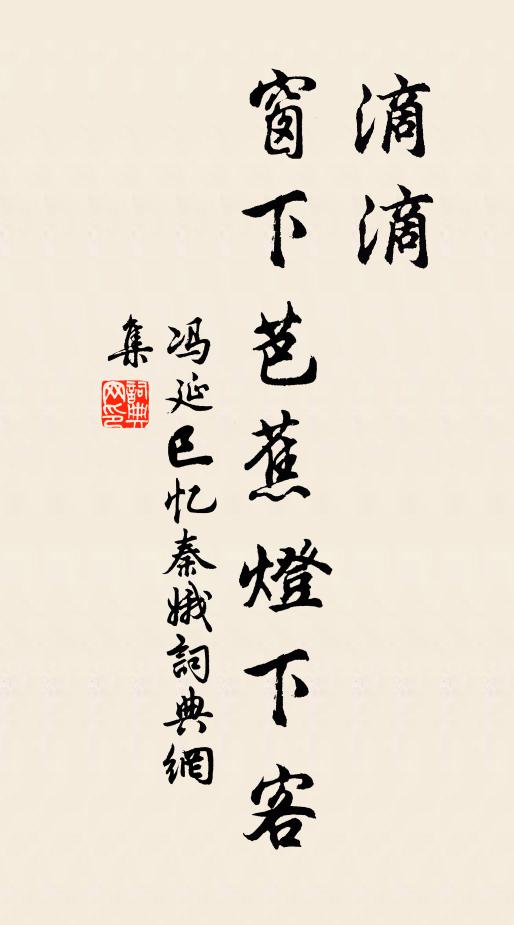 滴滴
窗下芭蕉燈下客
冯延巳忆秦娥詞典網
集
詞典
网印